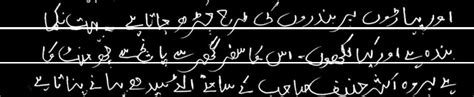 اور پہاڑوں پر بندروں کی طرح چڑھ جاتا ہے۔ بہت نکما
بندہ ہے اور کیا لکھوں۔ اس کا سفر گھر سے پانچ سے چھ منٹ کا
ہے پر وہ اکثر حنیف صاحب کے سامنے الٹے سیدھے بہانے بناتا ہے